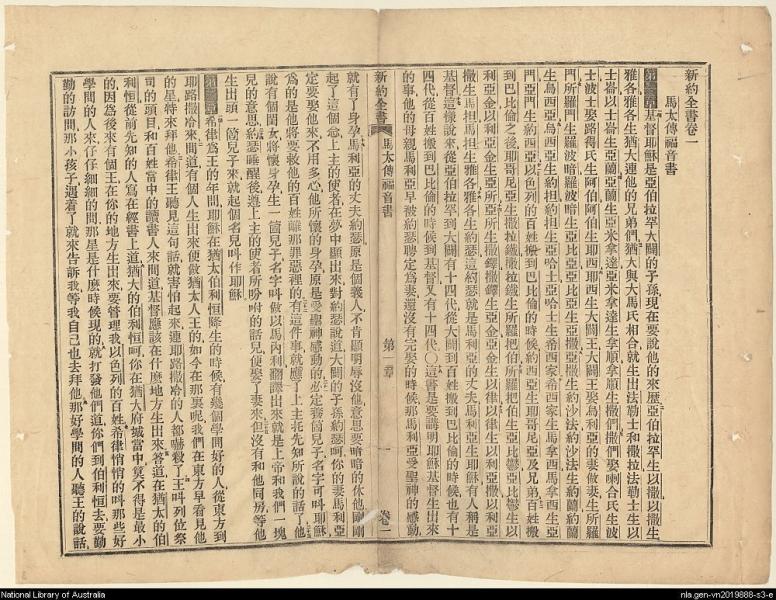 新約全書卷一
馬太傳福音書
第一章基督耶穌是亞伯拉罕大闢的子孫現在要說他的來歷亞伯拉罕生以撒以撒生
雅各雅各生猶大連他的兄弟們猶大與大馬氏相合就生出法勒士和撒拉法勒士生以
士崙以士崙生亞蘭亞蘭生亞米拿達亞米拿達生拿順拿順生撒們撒們娶喇合氏生波
士波士娶路得氏生阿伯阿伯生耶西耶西生大闢王大闢王娶烏利亞的妻做妻生所羅
門所羅門生羅波暗羅波暗生亞比亞亞比亞生亞撒亞撒生約沙法約沙法生約蘭約蘭
生烏西亞烏西亞生約担約担生亞哈士亞哈士生希西家希西家生馬拿西馬拿西生亞
門亞門生約西亞以色列的百姓搬到巴比倫的時候約西亞生耶哥尼亞及兄弟百姓搬
到巴比倫之後耶哥尼亞生撒拉鐵撒拉鐵生所羅把伯所羅把伯生亞比鬱亞比鬱生以
利亞金以利亞金生亞所亞所生撒鐸撒鐸生亞金亞金生以律以律生以利亞撒以利亞
撒生馬担馬担生雅各雅各生約瑟這約瑟就是馬利亞的丈夫馬利亞生耶穌有人稱是
基督這樣說來從亞伯拉罕到大闢有十四代從大闢到百姓搬到巴比倫的時候也有十
四代從百姓搬到巴比倫的時候到基督又有十四代〇這書是要講明耶穌基督生出來
的事他的母親馬利亞早被約瑟聘定爲妻還沒有完娶的時候那馬利亞受聖神的感動
新約全書
馬太傳福音書
第一章
卷一
就有了身孕馬利亞的丈夫約瑟原是個義人不肯顯明辱沒他意思要暗暗的休他剛剛
起了這個念上主的使者在夢中顯出來對約瑟說道大闢的子孫約瑟呵你的妻馬利亞
定要娶他來不用多心他所懷的身孕原是受聖神感動的必定養箇兒子名字可叫耶穌
爲的是他將要救他的百姓離那罪惡裡的有這件事就應了上主托先知所說的話了他
說有個閨女將懷身孕生一箇兒子名字叫做以馬內利翻譯出來就是上帝和我們一塊
兒的意思約瑟睡醒後遵上主的使者所吩咐的話兒便娶了妻來但沒有和他同房等他
生出頭一箇兒子來就起個名兒叫作耶穌
第二章希律爲王的年間耶穌在猶太伯利恒降生的時候有幾個學問好的人從東方到
耶路撒冷來問道有個人生出來便做猶太人王的如今在那裏呢我們在東方早看見他
的星特來拜他希律王聽見這句話就害怕起來連耶路撒冷的人都嚇殺了王叫列位祭
司的頭目和百姓當中的讀書人來問道基督應該在什麼地方生出來答道在猶太的伯
利恒從前先知的人寫在經書上道猶大的伯利恒呵你在猶大府城當中算不得是最小
的因爲後來有個王在你的地方生出來要管理我以色列的百姓希律悄悄的叫那些好
學問的人來仔仔細細的問那星是什麼時候現的就打發他們道你們到伯利恒去要勤
勤的訪問那小孩子遇着了就來告訴我等我自己也去拜他那好學問的人聽王的說話
National Library of Australia
nla.gen-vn2019888-s3-e